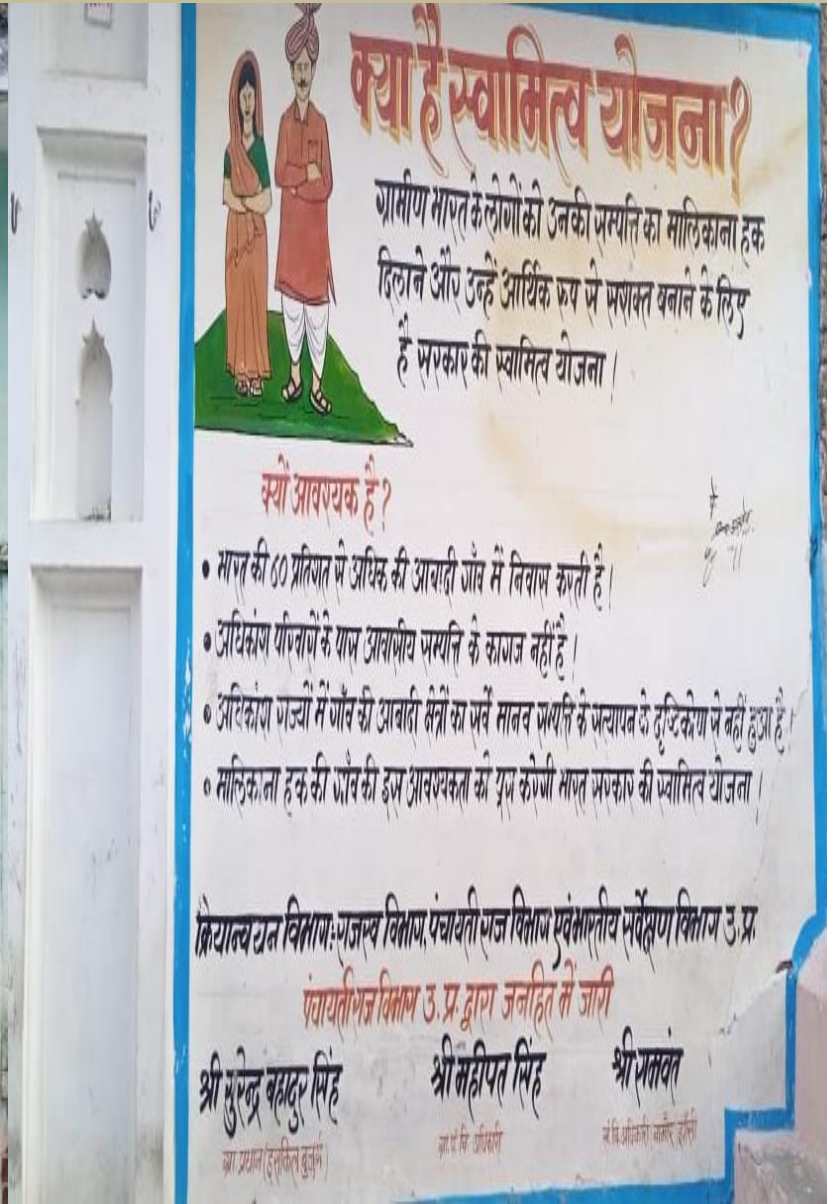 क्या है स्वामित्व योजना?
ग्रामीण भारत के लोगों को उनकी सम्पत्ति का मालिकाना हक
दिलाने और उन्हें आर्थिक रूप से सशक्त बनाने के लिए
है सरकार की स्वामित्व योजना।
क्यों आवश्यक है?
• भारत की ६० प्रतिशत से अधिक की आबादी गाँव में निवास करती है।
• अधिकांश परिवारों के पास आवासीय सम्पत्ति के कागज नहीं है।
• अधिकांश राज्यों में गाँव की आबादी क्षेत्रों का सर्वे मानव सम्पत्ति के सत्यापन के दृष्टिकोण से नहीं हुआ है।
• मालिकाना हक की गाँव की इस आवश्यकता को पूरा करेगी भारत सरकार की स्वामित्व योजना।
क्रियान्वयन विभाग:राजस्व विभाग, पंचायतीराज विभाग एवं भारतीय सर्वेक्षण विभाग उ.प्र.
पंचायतीराज विभाग उ.प्र. द्वारा जनहित में जारी
श्री सुरेन्द्र बहादुर सिंह श्री महीपत सिंह श्री रामवंत
ग्रा प्रधान (इसकिल बुजुर्ग) ग्रा.पं.वि अधिकारी अधिकारी बामौर, झाँसी